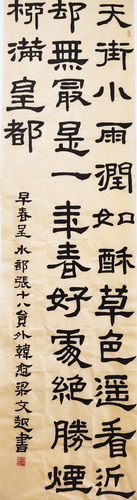 天街小雨潤如酥草色遥看近
却無最是一年春好處絶勝煙
柳滿皇都
早春呈水部張十八員外韓愈梁文超書